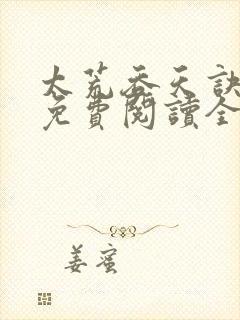 太荒吞天訣
免費閱讀全
姜蜜